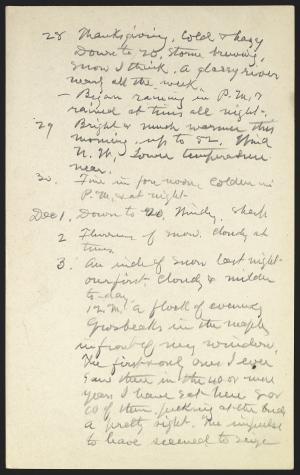 28 Thanksgiving, Cold & hazy
Down to 20, Storm brewing,
snow I think. A glassy river
nearly all the week.
— Began raining in P.M. &
rained at times all night.
29 Bright & much warmer this
morning, up to 52. Wind
N.W., lower temperature
near.
30 Fine in fore noon colder in
P.M. & at night
Dec 1, Down to 20, Windy, sharp
2 Flurries of snow. Cloudy at
times
3. An inch of snow last night
our first. Cloudy & milder
to-day.
12 M. a flock of evening
Grosbeaks in the maples
in front of my window,
The first & only ones I ever
saw here in the 40 or more
years I have sat here 50 or
60 of them, pecking at the buds
a pretty sight. The impulse
to have seemed to seize